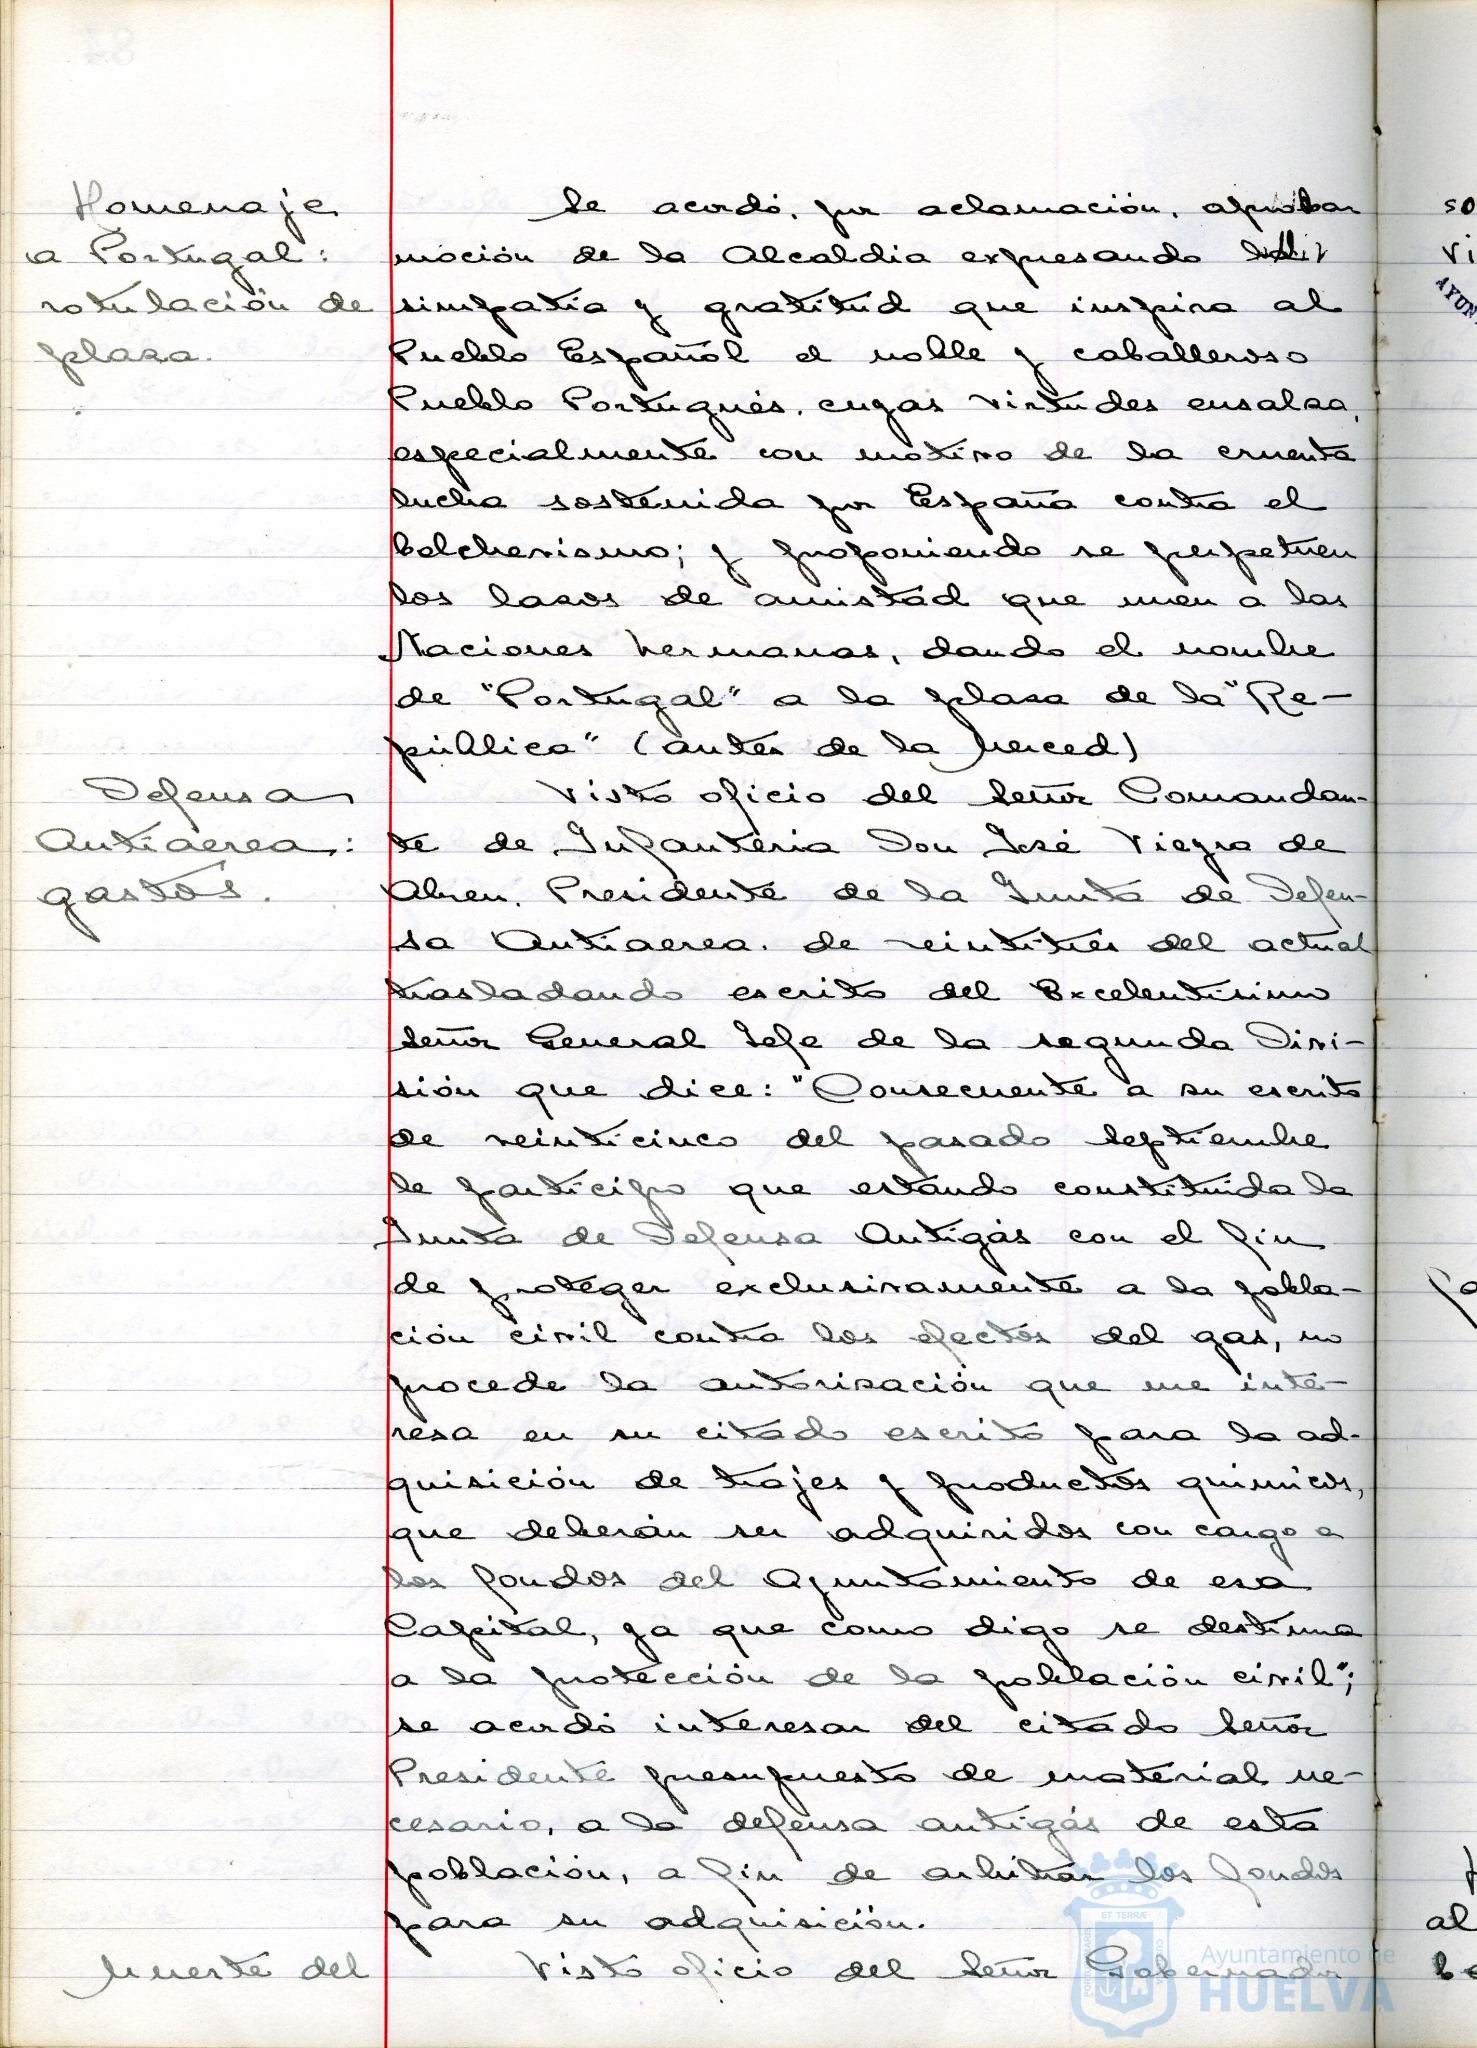 Homenaje
a Portugal:
rotulación de
plaza.
Se acordó, por aclamación, aprobar
moción de la Alcaldia expresando la
simpatia y gratitud que inspira al
Pueblo Español el noble y caballeroso
Pueblo Portugués, cuyas virtudes ensalza,
especialmente con motivo de la cruenta
lucha sostenida por España contra el
bolchevismo; y proponiendo se perpetuen
los lazos de amistad que unen a las
Naciones hermanas, dando el nombre
de "Portugal" a la plaza de la "Re-
pública" (antes de la Merced)
Defensa
Antiaerea:
gastos.
Visto oficio del Señor Comandan-
te de Infanteria Don José Viegra de
Abreu, Presidente de la Junta de Defen-
sa Antiaerea, de veintitrés del actual
trasladando escrito del Excelentisimo
Señor General Jefe de la segunda Divi-
sión que dice: "Consecuente a su escrito
de veinticinco del pasado Septiembre
le participo que estando constituida la
Junta de Defensa Antigás con el fin
de proteger exclusivamente a la pobla-
ción civil contra los efectos del gas, no
procede la autorización que me inte-
resa en su citado escrito para la ad-
quisición de trajes y productos quimicos,
que deberán ser adquiridos con cargo a
los fondos del Ayuntamiento de esa
Capital, ya que como digo se destinna
a la protección de la población civil";
se acordó interesar del citado Señor
Presidente presupuesto de material ne-
cesario, a la defensa antigás de esta
población, a fin de arbitrar los fondos
para su adquisición.
Muerte del
Visto oficio del Señor Gobernador
Ayuntamiento de
HUELVA
so
vi
AYUN
al